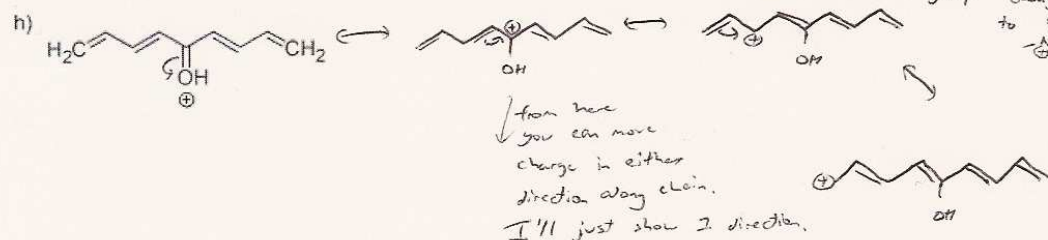 h)
H₂C CH₂
OH
⊕
⊕
OH
⊕
OH
to
N
⊕
from here
you can move
charge in either
direction along chain.
I'll just show 1 direction.
⊕
OH